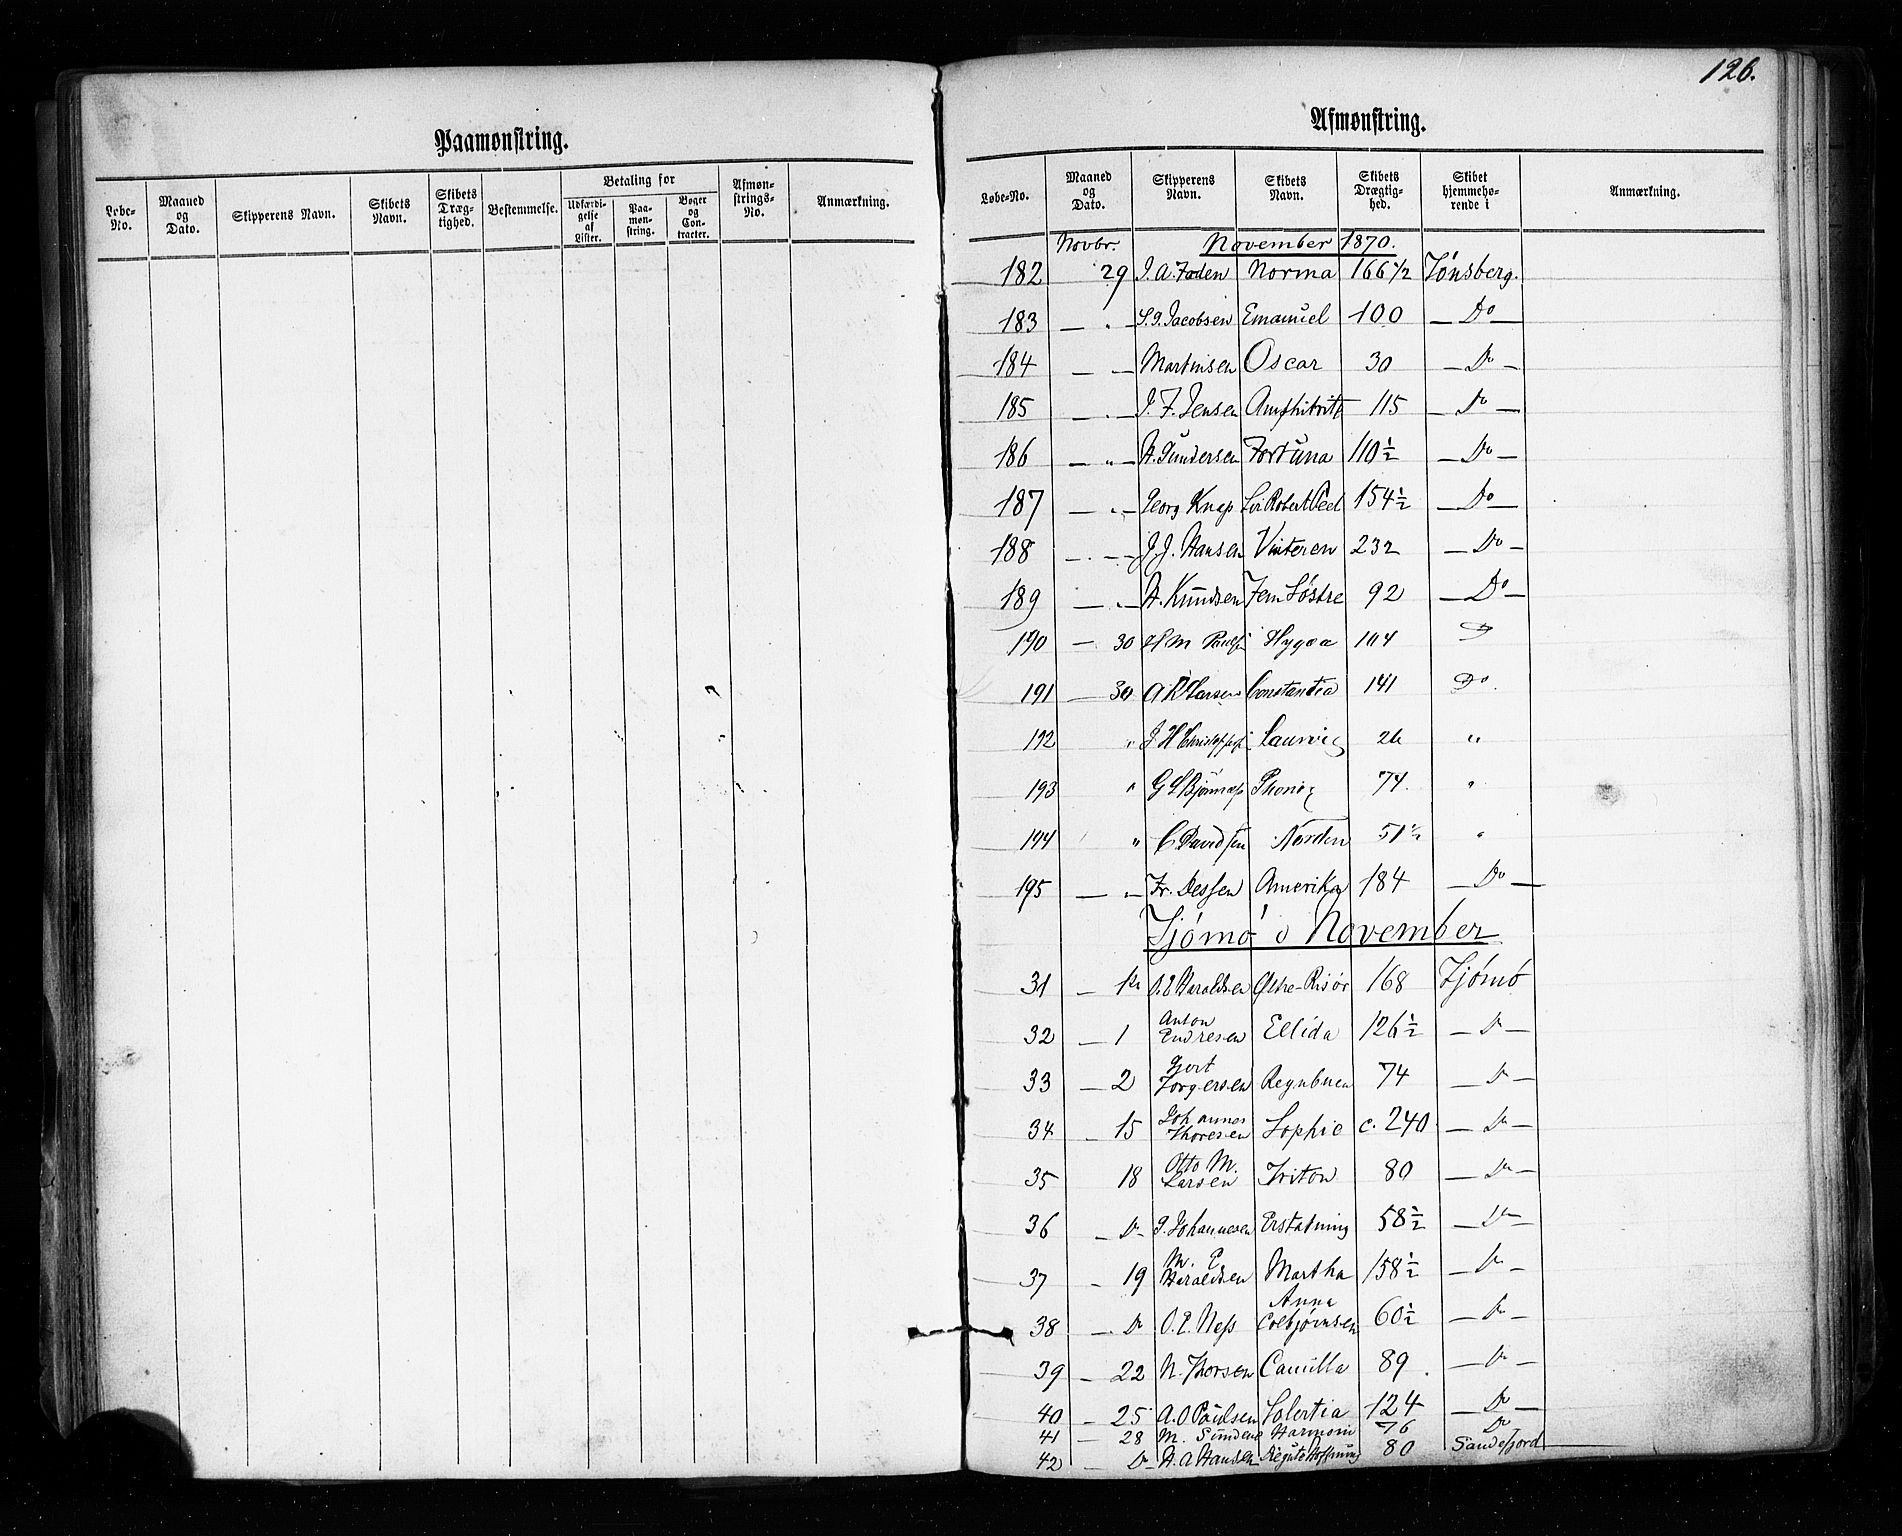 126.
Paamønstring.
Løbe-No. | Maaned og Dato. | Skipperens Navn. | Skibets Navn. | Skibets Dræg-tighed. | Bestemmelse. | Betaling for | Udfærdi-gelse af Lister. | Paa-møn-string. | Bøger og Con-tracter. | Afmøn-strings-No. | Anmærkning.
Afmønstring.
Løbe-No. | Maaned og Dato. | Skipperens Navn. | Skibets Navn. | Skibets Drægtig-hed. | Skibet hjemmehø-rende i | Anmærkning.
Novbr. November 1870.
182 29 J. A. Foden Norma 166 1/2 Tönsberg.
183 — " — S. G. Jacobsen Emanuel 100 — Do —
184 — — Martinsen Oscar 30 — Do —
185 — " — J. F. Jensen Amphitrite 115 — Do —
186 — " — H. Gundersen Fortuna 110 1/2 — Do —
187 — " — Georg Knap Sir Robert Peel 154 1/2 — Do —
188 — " — J. J. Hansen Vinteren 232 — Do —
189 — " — A. Knudsen Fem Söstre 92 — Do —
190 — 30 H M Hygæa 104 Do
191 — 30 A R Larsen Constantia 141 Do.
192 " J H Laurvig 26 "
193 " G S 74. "
194 " C Davidsen Norden 51 1/2 "
195 — " — Fr. Dessen Amerika 184 — Do —
Tjömö November
31 — O. E. Haraldsen Østre-Risör 168 Tjömö
32 — 1 Anton Endresen Ellida 126 1/2 — Do —
33 — 2 Gjert Torgersen Regnbuen 74 — Do —
34 — 15 Johannes Thoresen Sophie c. 240 — Do —
35 18 Otto M. Larsen Triton 80 — Do —
36 — Do — Johannesen Erstatning 58 1/2 — Do —
37 — 19 M. E. Haraldsen Martha 158 1/2 — Do —
38 — Do O. E. Ness Anna Colbjørnsen 60 1/2 — Do —
39 — 22 N. Thorsen Camilla 89 — Do —
40 — 25 A. O Paulsen Solertia 124 — Do —
41 — 28 M. Harmoni 76 Do
42 Do — H. A Hansen 80 Sandefjord